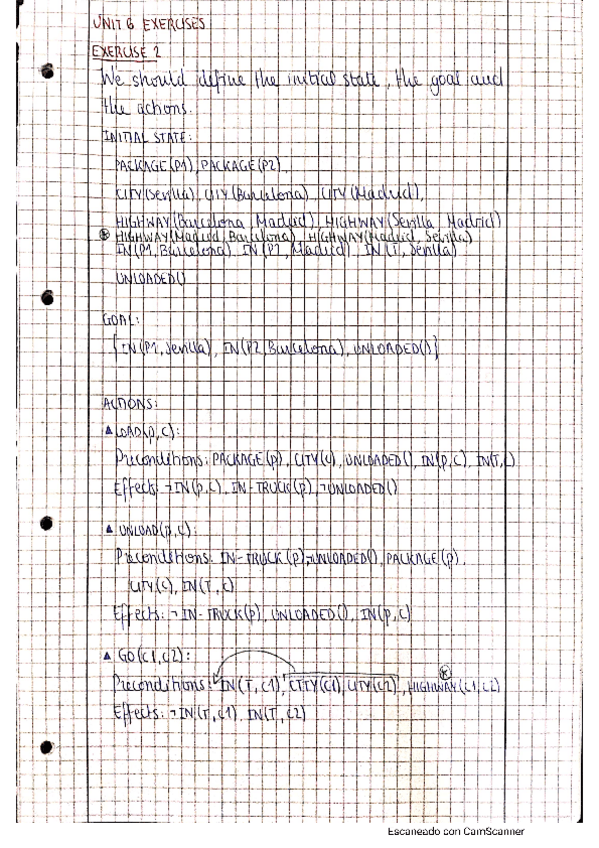 UNIT 6 EXERCISES
EXERCISE 2
We should define the initial state, the goal and
the actions.
INITIAL STATE:
PACKAGE(P1), PACKAGE(P2),
CITY(Sevilla), CITY(Barcelona), CITY(Madrid),
HIGHWAY(Barcelona, Madrid), HIGHWAY(Sevilla, Madrid)
HIGHWAY(Madrid, Barcelona), HIGHWAY(Madrid, Sevilla)
IN(P1, Barcelona), IN(P2, Madrid), IN(T, Sevilla)
UNLOADED()
GOAL:
{IN(P1, Sevilla), IN(P2, Barcelona), UNLOADED()}
ACTIONS:
▲ LOAD(p, c):
Preconditions: PACKAGE(p), CITY(c), UNLOADED(), IN(p, c), IN(T, c)
Effects: ¬IN(p, c), IN-TRUCK(p), ¬UNLOADED()
▲ UNLOAD(p, c):
Preconditions: IN-TRUCK(p), ¬UNLOADED(), PACKAGE(p),
CITY(c), IN(T, c)
Effects: ¬IN-TRUCK(p), UNLOADED(), IN(p, c)
▲ GO(c1, c2):
Preconditions: IN(T, c1), CITY(c1), CITY(c2), HIGHWAY(c1, c2)
Effects: ¬IN(T, c1), IN(T, c2)
Escaneado con CamScanner